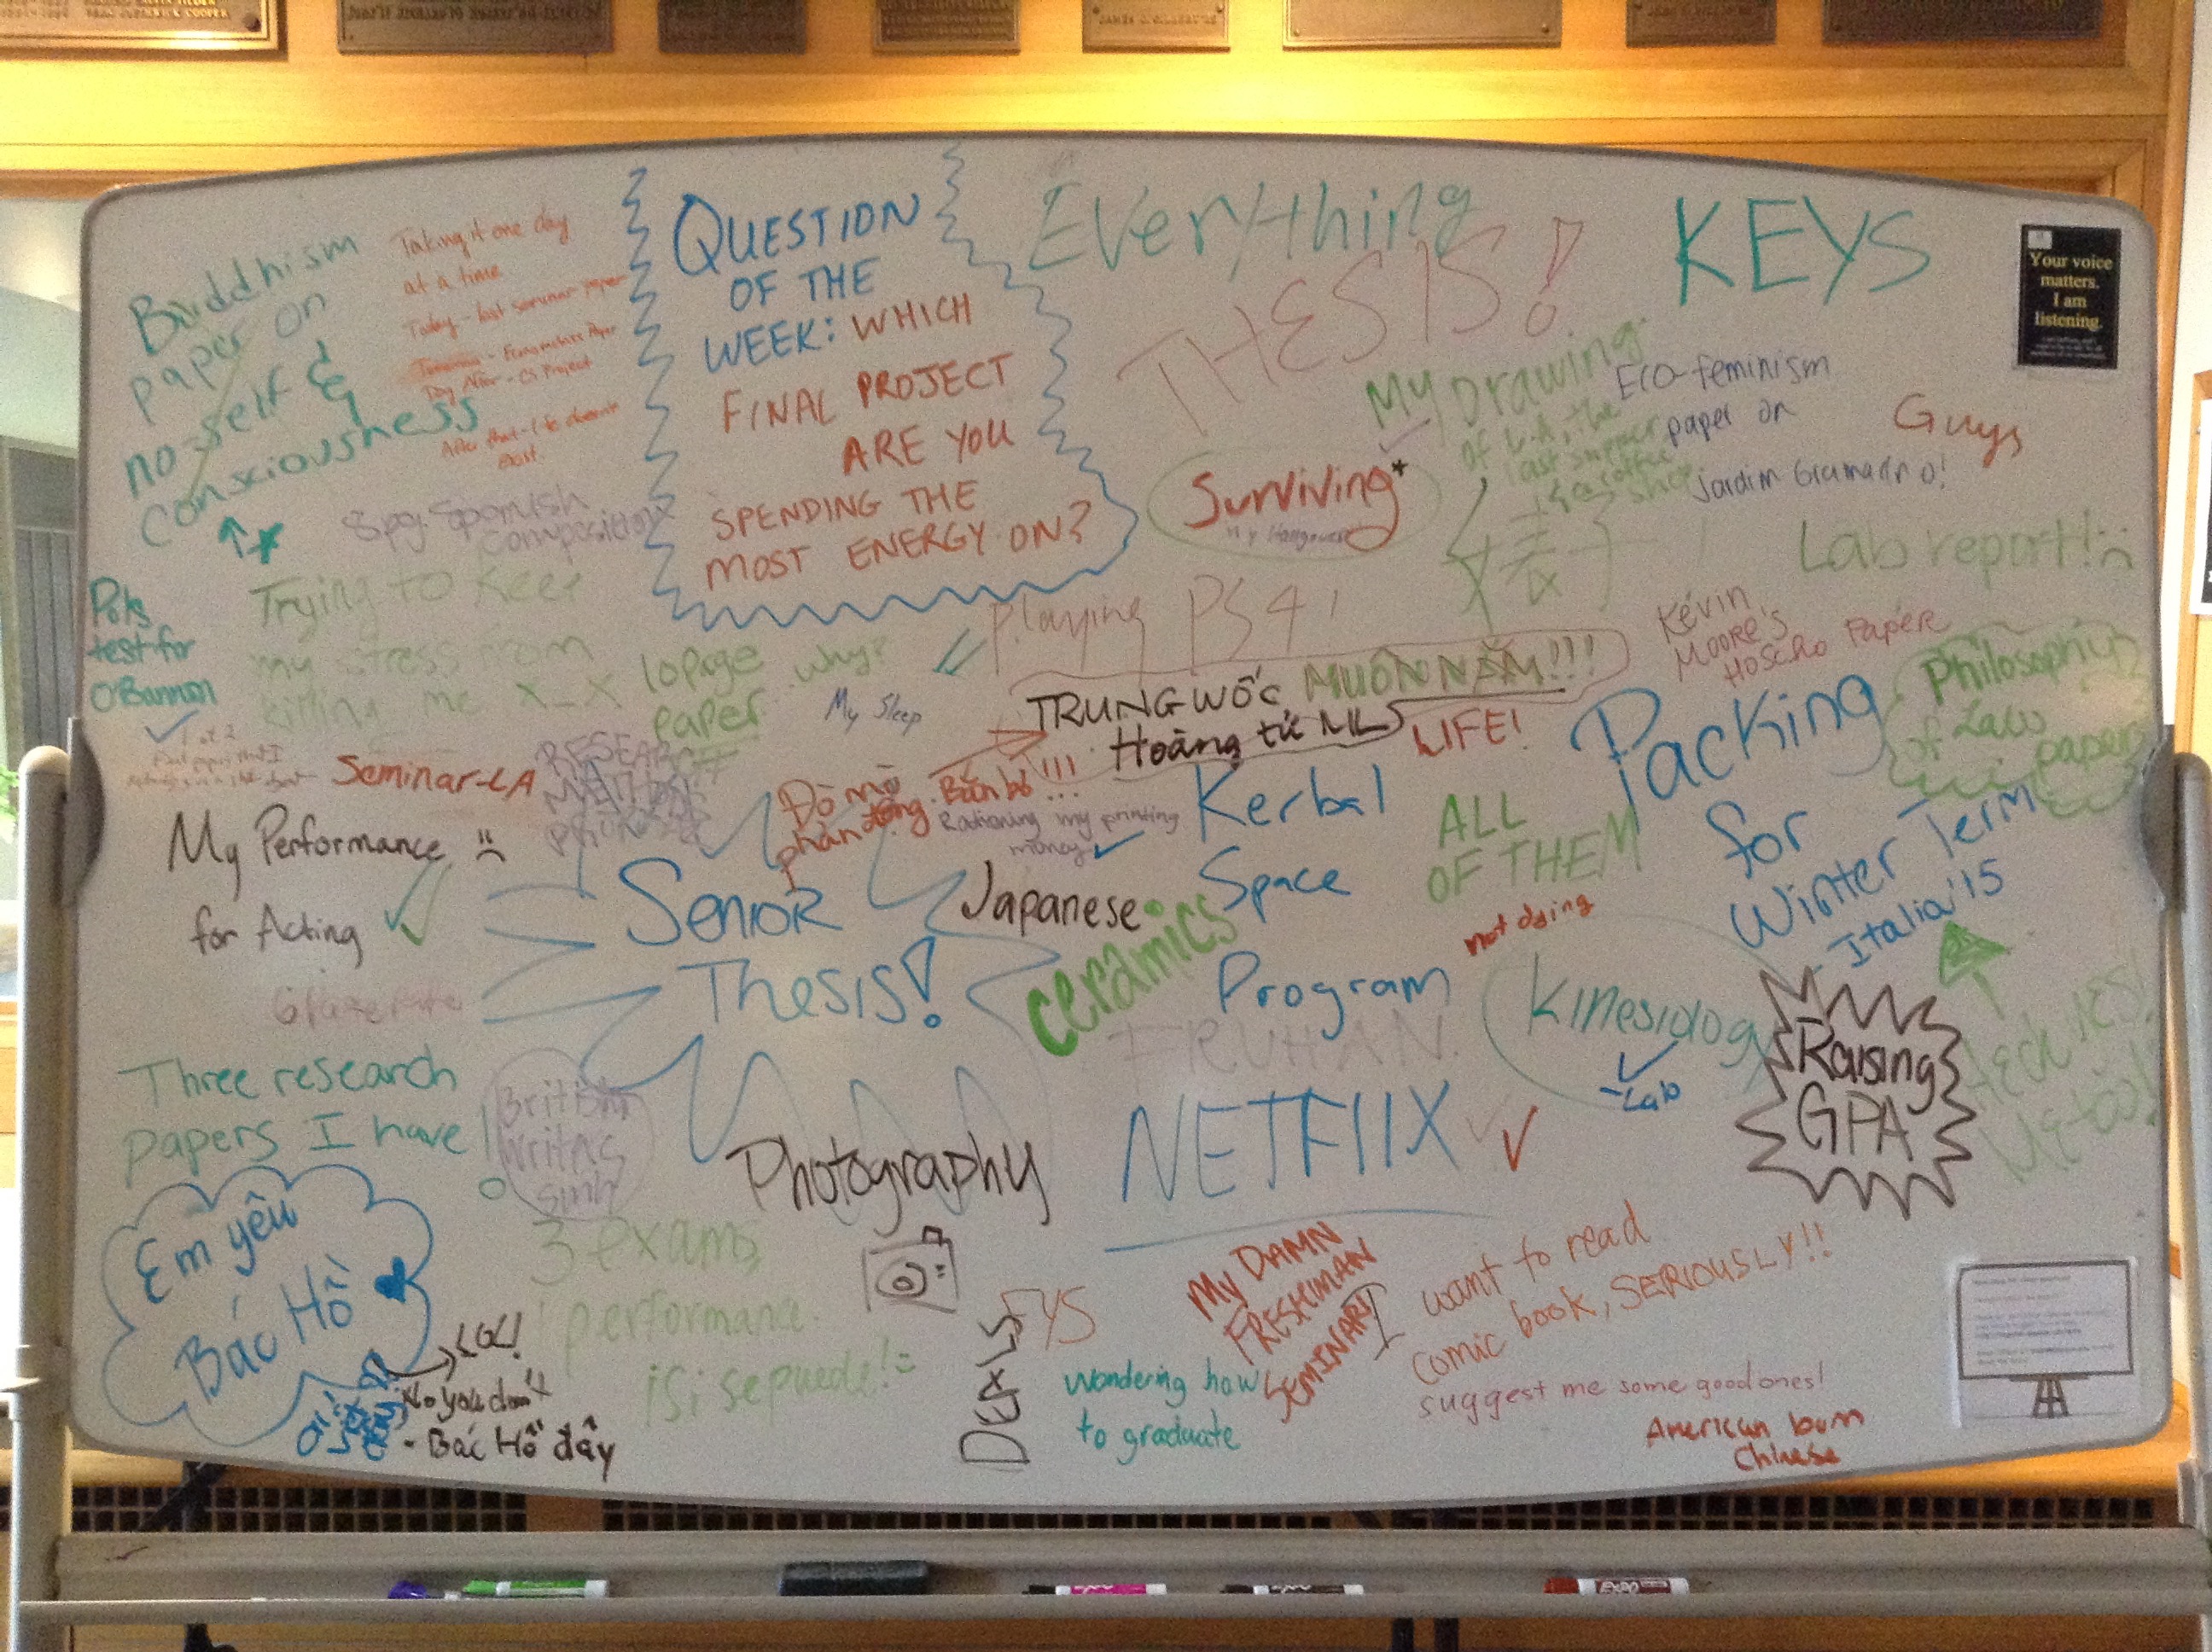 QUESTION
OF THE
WEEK: WHICH
FINAL PROJECT
ARE YOU
SPENDING THE
MOST ENERGY ON?
Buddhism
paper on
no-self &
consciousness
Taking it one day
at a time
Today - last seminar paper
Tomorrow - Econometrics Paper
Day After - CS Project
After that - life doesn't
exist
8pg. Spanish
composition
Everything
THESIS!
KEYS
Your voice
matters.
I am
listening.
My Drawing
of L.A, the
last supper
coffee
shop
Eco-feminism
paper on
Jardim Gramacho!
Guys
Surviving*
my Hangover
Lab report!
Pols
test for
O'Bannon
Trying to keep
my stress from
killing me X_X
10 page
paper. why?
My Sleep
Playing PS4!
TRUNG WỐC MUÔN NĂM!!!
Hoàng tử ML
LIFE!
Kevin
Moore's
HoSchо Paper
Philosophy
of Law
paper
Packing
for
Winter Term
- Italia '15
1 of 2
Seminar-LA
RESEARCH
METHODS
Đò mò
phản động. Bắn bỏ!!!
Rationing my printing
money
Kerbal
Space
Program
ALL
OF THEM
not dying
My Performance
for Acting
SENIOR
THESIS!
Japanese
ceramics
FRUHAN
Kinesiology
- Lab
Raising
GPA
Heck YES!
Me too!
Three research
papers I have!
British
Writing
NETFlIX
Photography
Em yêu
Bác Hồ
LOL!
No you don't
- Bác Hồ đây
3 exams,
1 performance.
¡Si se puede!
FYS
MY DAMN
FRESHMAN
SEMINAR!
I want to read
comic book, SERIOUSLY!!
suggest me some good ones!
American born
Chinese
Wondering how
to graduate
EXPO